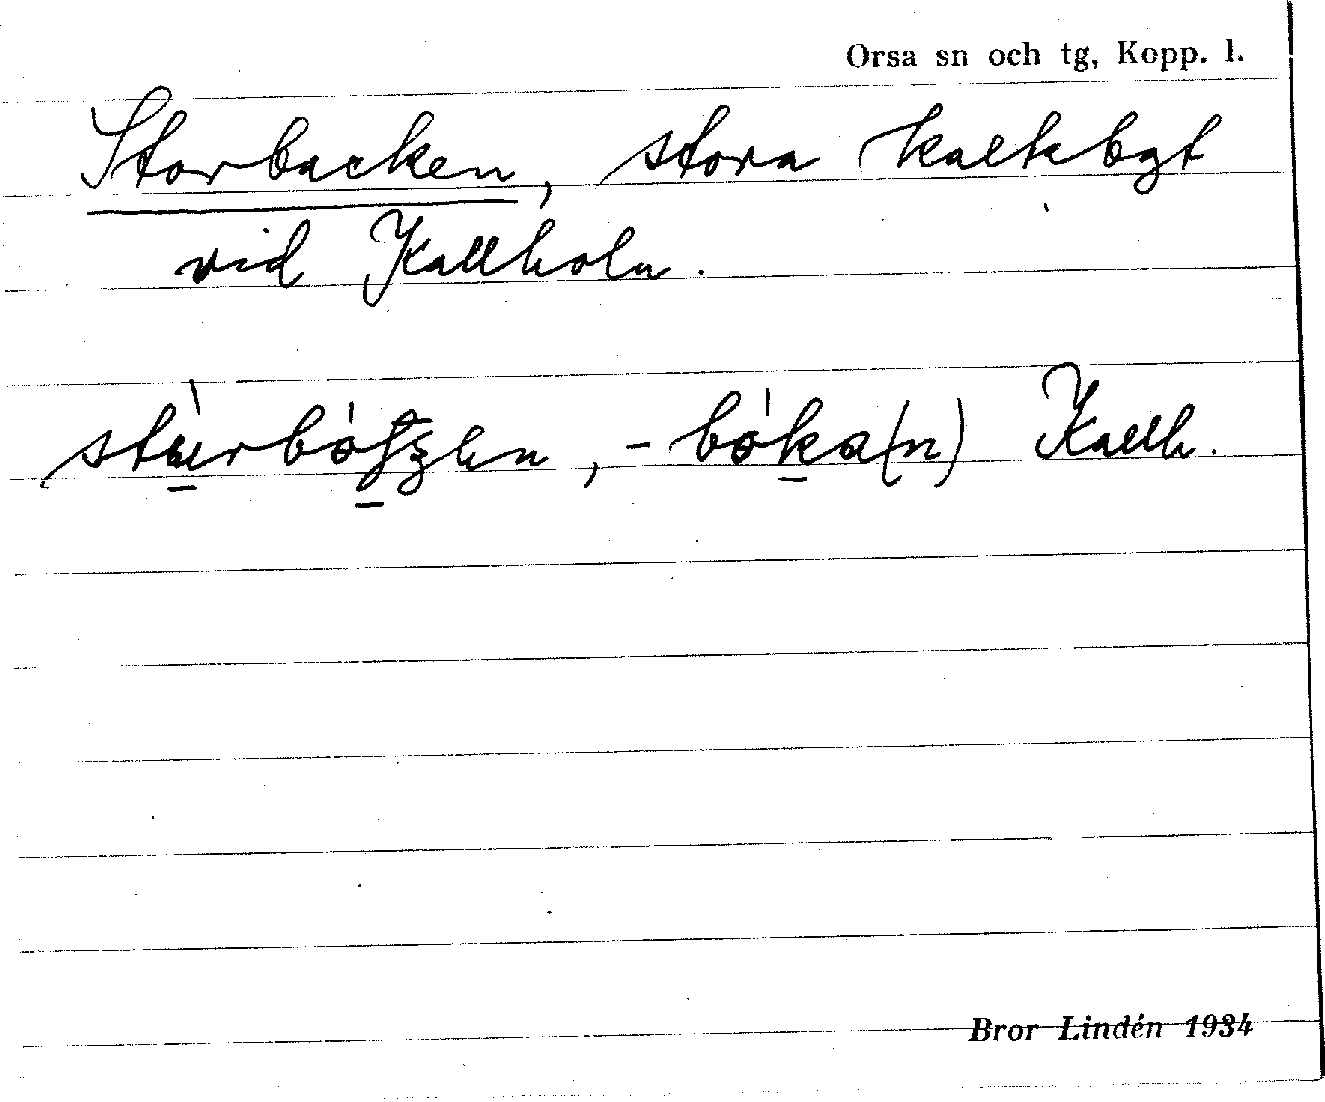 Orsa sn och tg, Kopp. l.
Storbacken, stora kalkbgt
vid Kallholn.
-bóka(n) Kallh.
Bror Lindén 1934